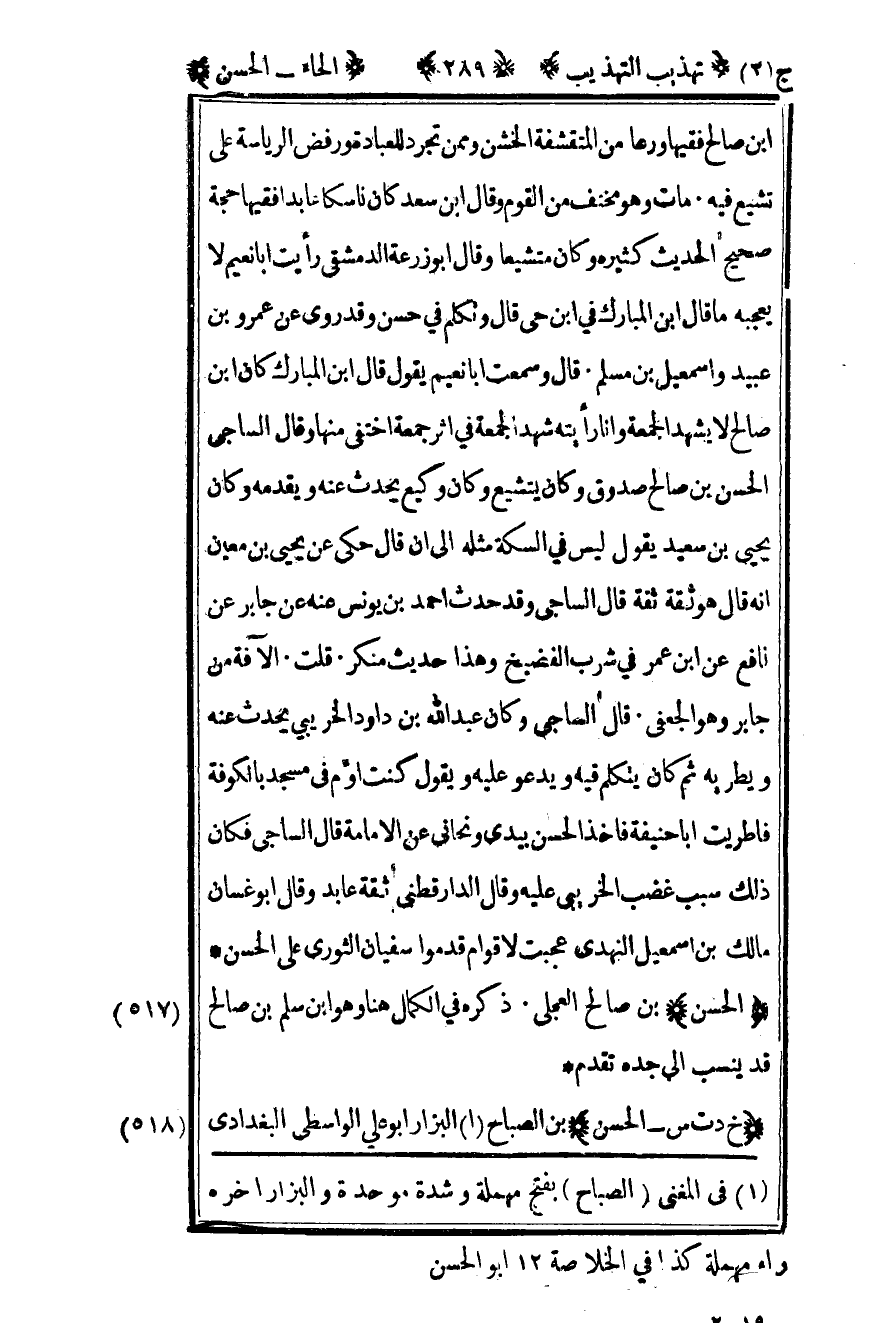 ج(٢) ﴿ تهذيب التهذيب ﴾ ﴿ ٢٨٩ ﴾ ﴿ الحاء ـ الحسن ﴾
ابن صالح فقيها ورعا من المتقشفة الخشن وممن تجرد للعبادة ورفض الرياسة على
تشيع فيه ٠ مات وهو مختف من القوم وقال ابن سعد كان ناسكا عابدا فقيها حجة
صحيح الحديث كثيره وكان متشيعا وقال ابو زرعة الدمشقى رأيت ابا نعيم لا
يعجبه ما قال ابن المبارك في ابن حى قال وتكلم في حسن وقد روى عن عمرو بن
عبيد واسمعيل بن مسلم ٠ قال وسمعت ابا نعيم يقول قال ابن المبارك كان ابن
صالح لا يشهد الجمعة وانا رأيته شهد الجمعة في اثر جمعة اختفى منها وقال الساجى
الحسن بن صالح صدوق وكان يتشيع وكان وكيع يحدث عنه ويقدمه وكان
يحيى بن سعيد يقول ليس في السكة مثله الى ان قال حكى عن يحيى بن معين
انه قال هو ثقة ثقة قال الساجى وقد حدث احمد بن يونس عنه عن جابر عن
نافع عن ابن عمر في شرب الفضيخ وهذا حديث منكر ٠ قلت ٠ الآفة من
جابر وهو الجعفى ٠ قال الساجى وكان عبدالله بن داود الخريبي يحدث عنه
ويطريه ثم كان يتكلم فيه ويدعو عليه ويقول كنت اؤم فى مسجد بالكوفة
فاطريت ابا حنيفة فاخذ الحسن بيدى ونحانى عن الامامة قال الساجى فكان
ذلك سبب غضب الخريبى عليه وقال الدارقطنى ثقة عابد وقال ابو غسان
مالك بن اسمعيل النهدى عجبت لاقوام قدموا سفيان الثورى على الحسن*
﴿ الحسن ﴾ بن صالح العجلى ٠ ذكره في الكمال هنا وهو ابن سلم بن صالح (٥١٧)
قد ينسب الى جده تقدم*
﴿ خ د ت س ـ الحسن ﴾ بن الصباح (١) البزار ابو على الواسطى البغدادى (٥١٨)
(١) فى المغنى ( الصباح ) بفتح مهملة وشدة موحدة والبزار اخره
راء مهملة كذا في الخلاصة ١٢ ابو الحسن